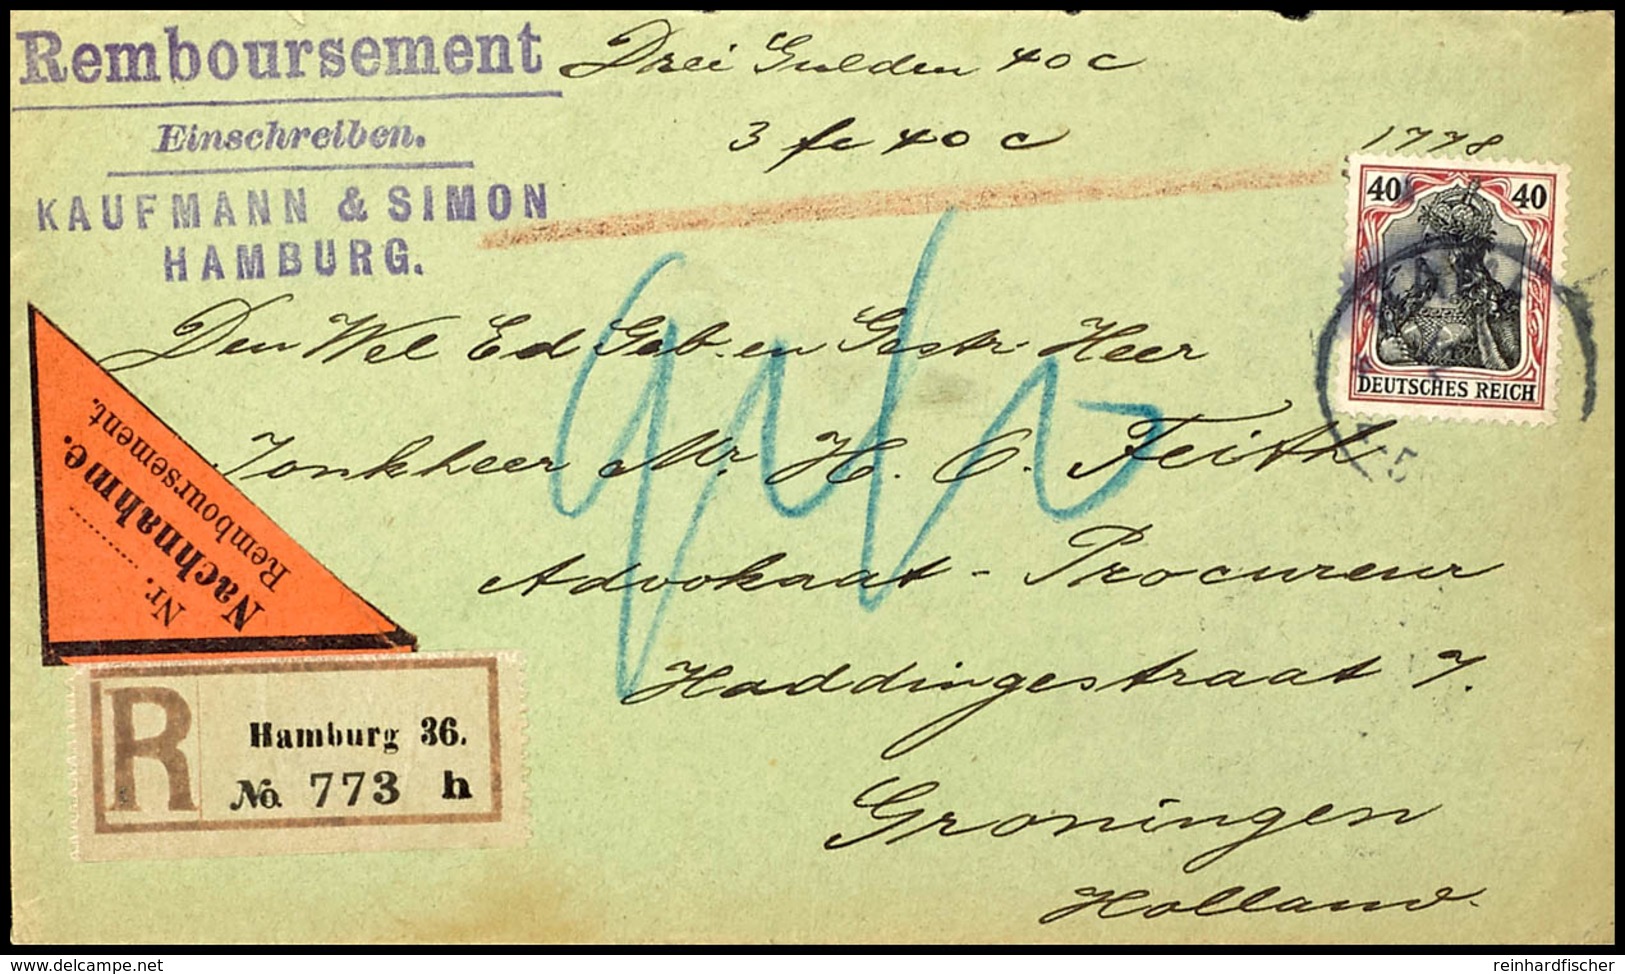 Remboursement
Drei Gulden 40 c
Einschreiben.
3 fr 40 c
KAUFMANN & SIMON
HAMBURG.
1778
40 40
DEUTSCHES REICH
Den Wel Ed Geb. en Gestr. Heer
Jonkheer Mr. H. O. Feith
Advokaat - Procureur
Haddingestraat 7.
Groningen
Holland.
Nr.
Nachnahme.
Remboursement.
R
Hamburg 36.
No. 773 h
delcampe.net
reinhardfischer